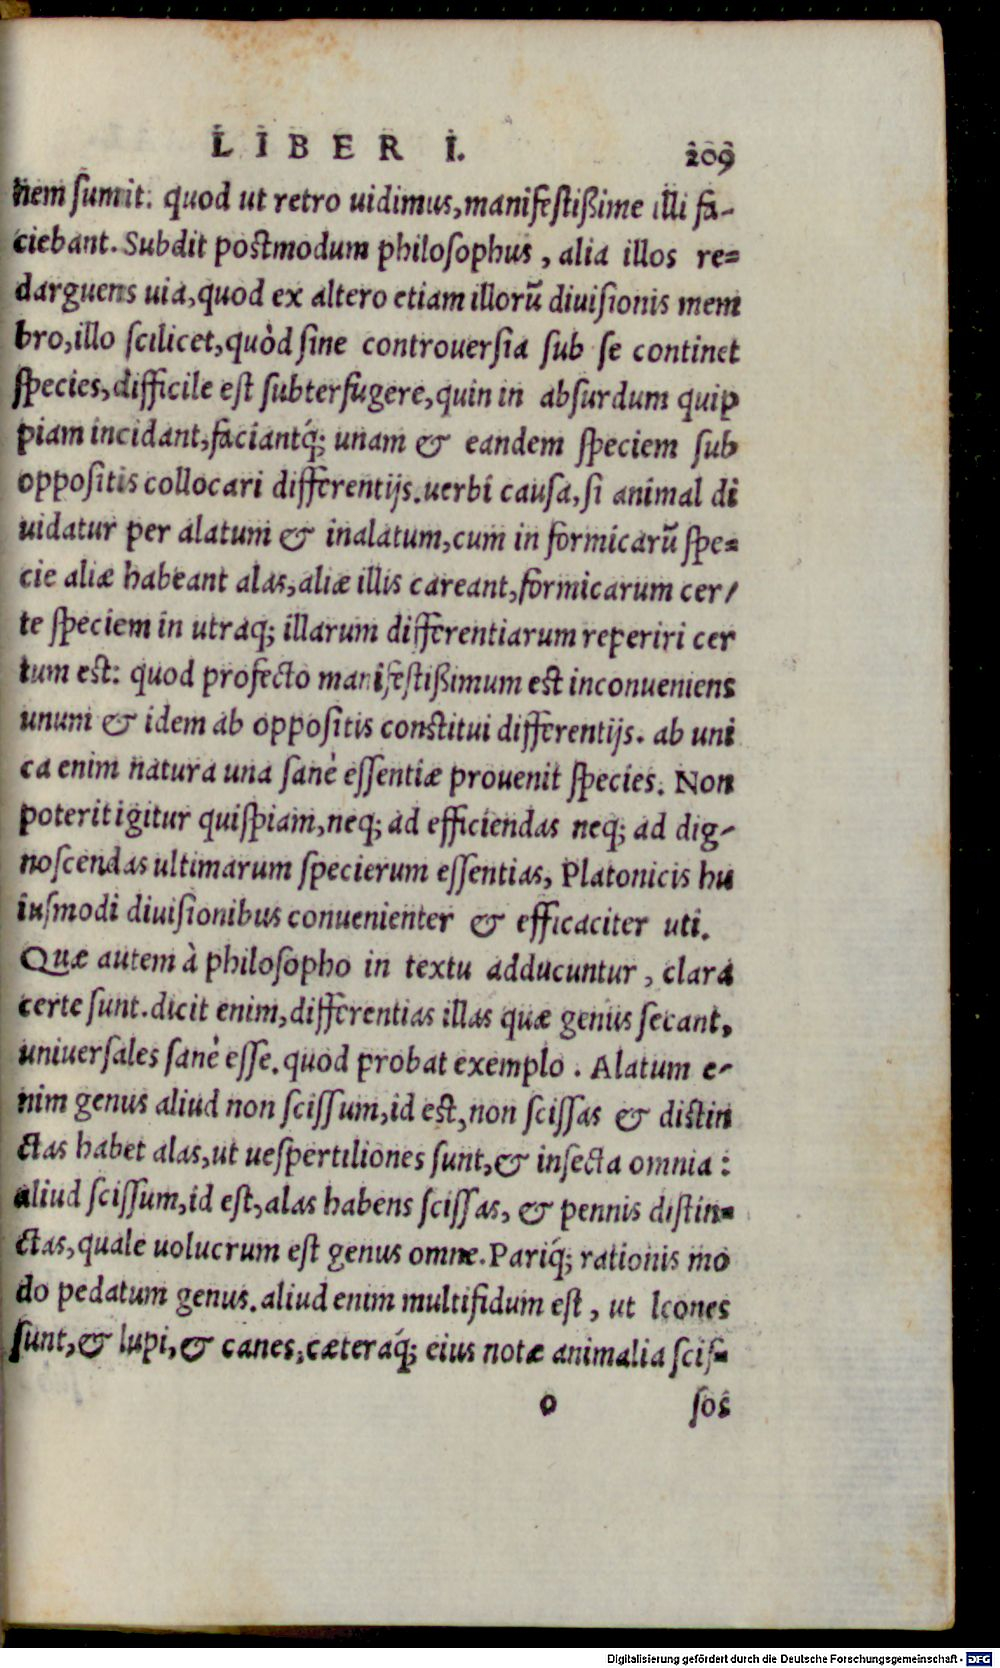 LIBER I. 209
nem sumit: quod ut retro uidimus, manifestißime illi fa-
ciebant. Subdit postmodum philosophus, alia illos re=
darguens uia, quod ex altero etiam illorũ diuisionis mem
bro, illo scilicet, quòd sine controuersia sub se continet
species, difficile est subterfugere, quin in absurdum quip
piam incidant, faciantq́; unam & eandem speciem sub
oppositis collocari differentijs. uerbi causa, si animal di
uidatur per alatum & inalatum, cum in formicarũ spe=
cie aliæ habeant alas, aliæ illis careant, formicarum cer/
te speciem in utraq; illarum differentiarum reperiri cer
tum est: quod profecto manifestißimum est inconueniens
unum & idem ab oppositis constitui differentijs. ab uni
ca enim natura una sanè essentiæ prouenit species. Non
poterit igitur quispiam, neq; ad efficiendas neq; ad dig-
noscendas ultimarum specierum essentias, Platonicis hu
iusmodi diuisionibus conuenienter & efficaciter uti.
Quæ autem à philosopho in textu adducuntur, clara
certe sunt. dicit enim, differentias illas quæ genus secant,
uniuersales sanè esse. quod probat exemplo. Alatum e-
nim genus aliud non scissum, id est, non scissas & distin
ctas habet alas, ut uespertiliones sunt, & insecta omnia:
aliud scissum, id est, alas habens scissas, & pennis distin=
ctas, quale uolucrum est genus omne. Pariq́; rationis mo
do pedatum genus. aliud enim multifidum est, ut leones
sunt, & lupi, & canes, cæteraq́; eius notæ animalia scis=
o sos
Digitalisierung gefördert durch die Deutsche Forschungsgemeinschaft - DFG